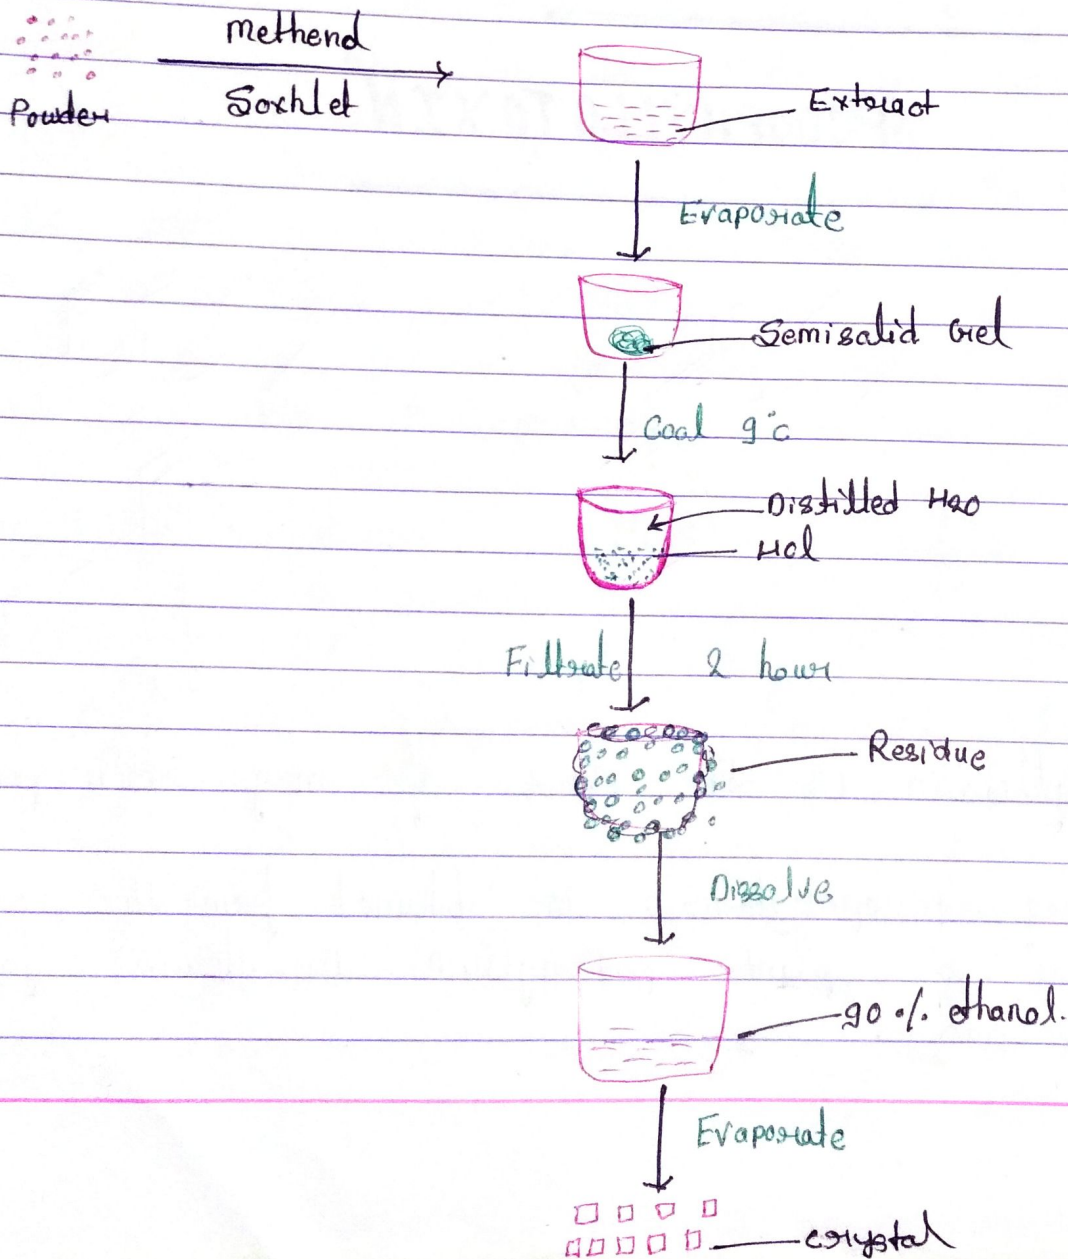 Methend
Powder
Soxhlet
Extract
Evaporate
Semisalid Gel
Coal 9°c
Distilled H2O
Hcl
Filtrate 2 hour
Residue
Dissolve
90 % ethanol.
Evaporate
crystal